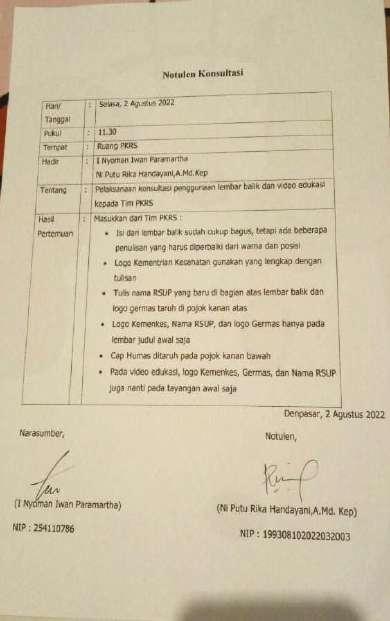 Notulen Konsultasi
Hari/ : Selasa, 2 Agustus 2022
Tanggal
Pukul : 11.30
Tempat : Ruang PKRS
Hadir : I Nyoman Iwan Paramartha
Ni Putu Rika Handayani,A.Md.Kep
Tentang : Pelaksanaan konsultasi penggunaan lembar balik dan video edukasi
kepada Tim PKRS
Hasil : Masukkan dari Tim PKRS :
Pertemuan • Isi dari lembar balik sudah cukup bagus, tetapi ada beberapa
penulisan yang harus diperbaiki dari warna dan posisi
• Logo Kementrian Kesehatan gunakan yang lengkap dengan
tulisan
• Tulis nama RSUP yang baru di bagian atas lembar balik dan
logo germas taruh di pojok kanan atas
• Logo Kemenkes, Nama RSUP, dan logo Germas hanya pada
lembar judul awal saja
• Cap Humas ditaruh pada pojok kanan bawah
• Pada video edukasi, logo Kemenkes, Germas, dan Nama RSUP
juga nanti pada tayangan awal saja
Denpasar, 2 Agustus 2022
Narasumber,
Notulen,
(I Nyoman Iwan Paramartha)
(Ni Putu Rika Handayani,A.Md. Kep)
NIP : 254110786
NIP : 199308102022032003